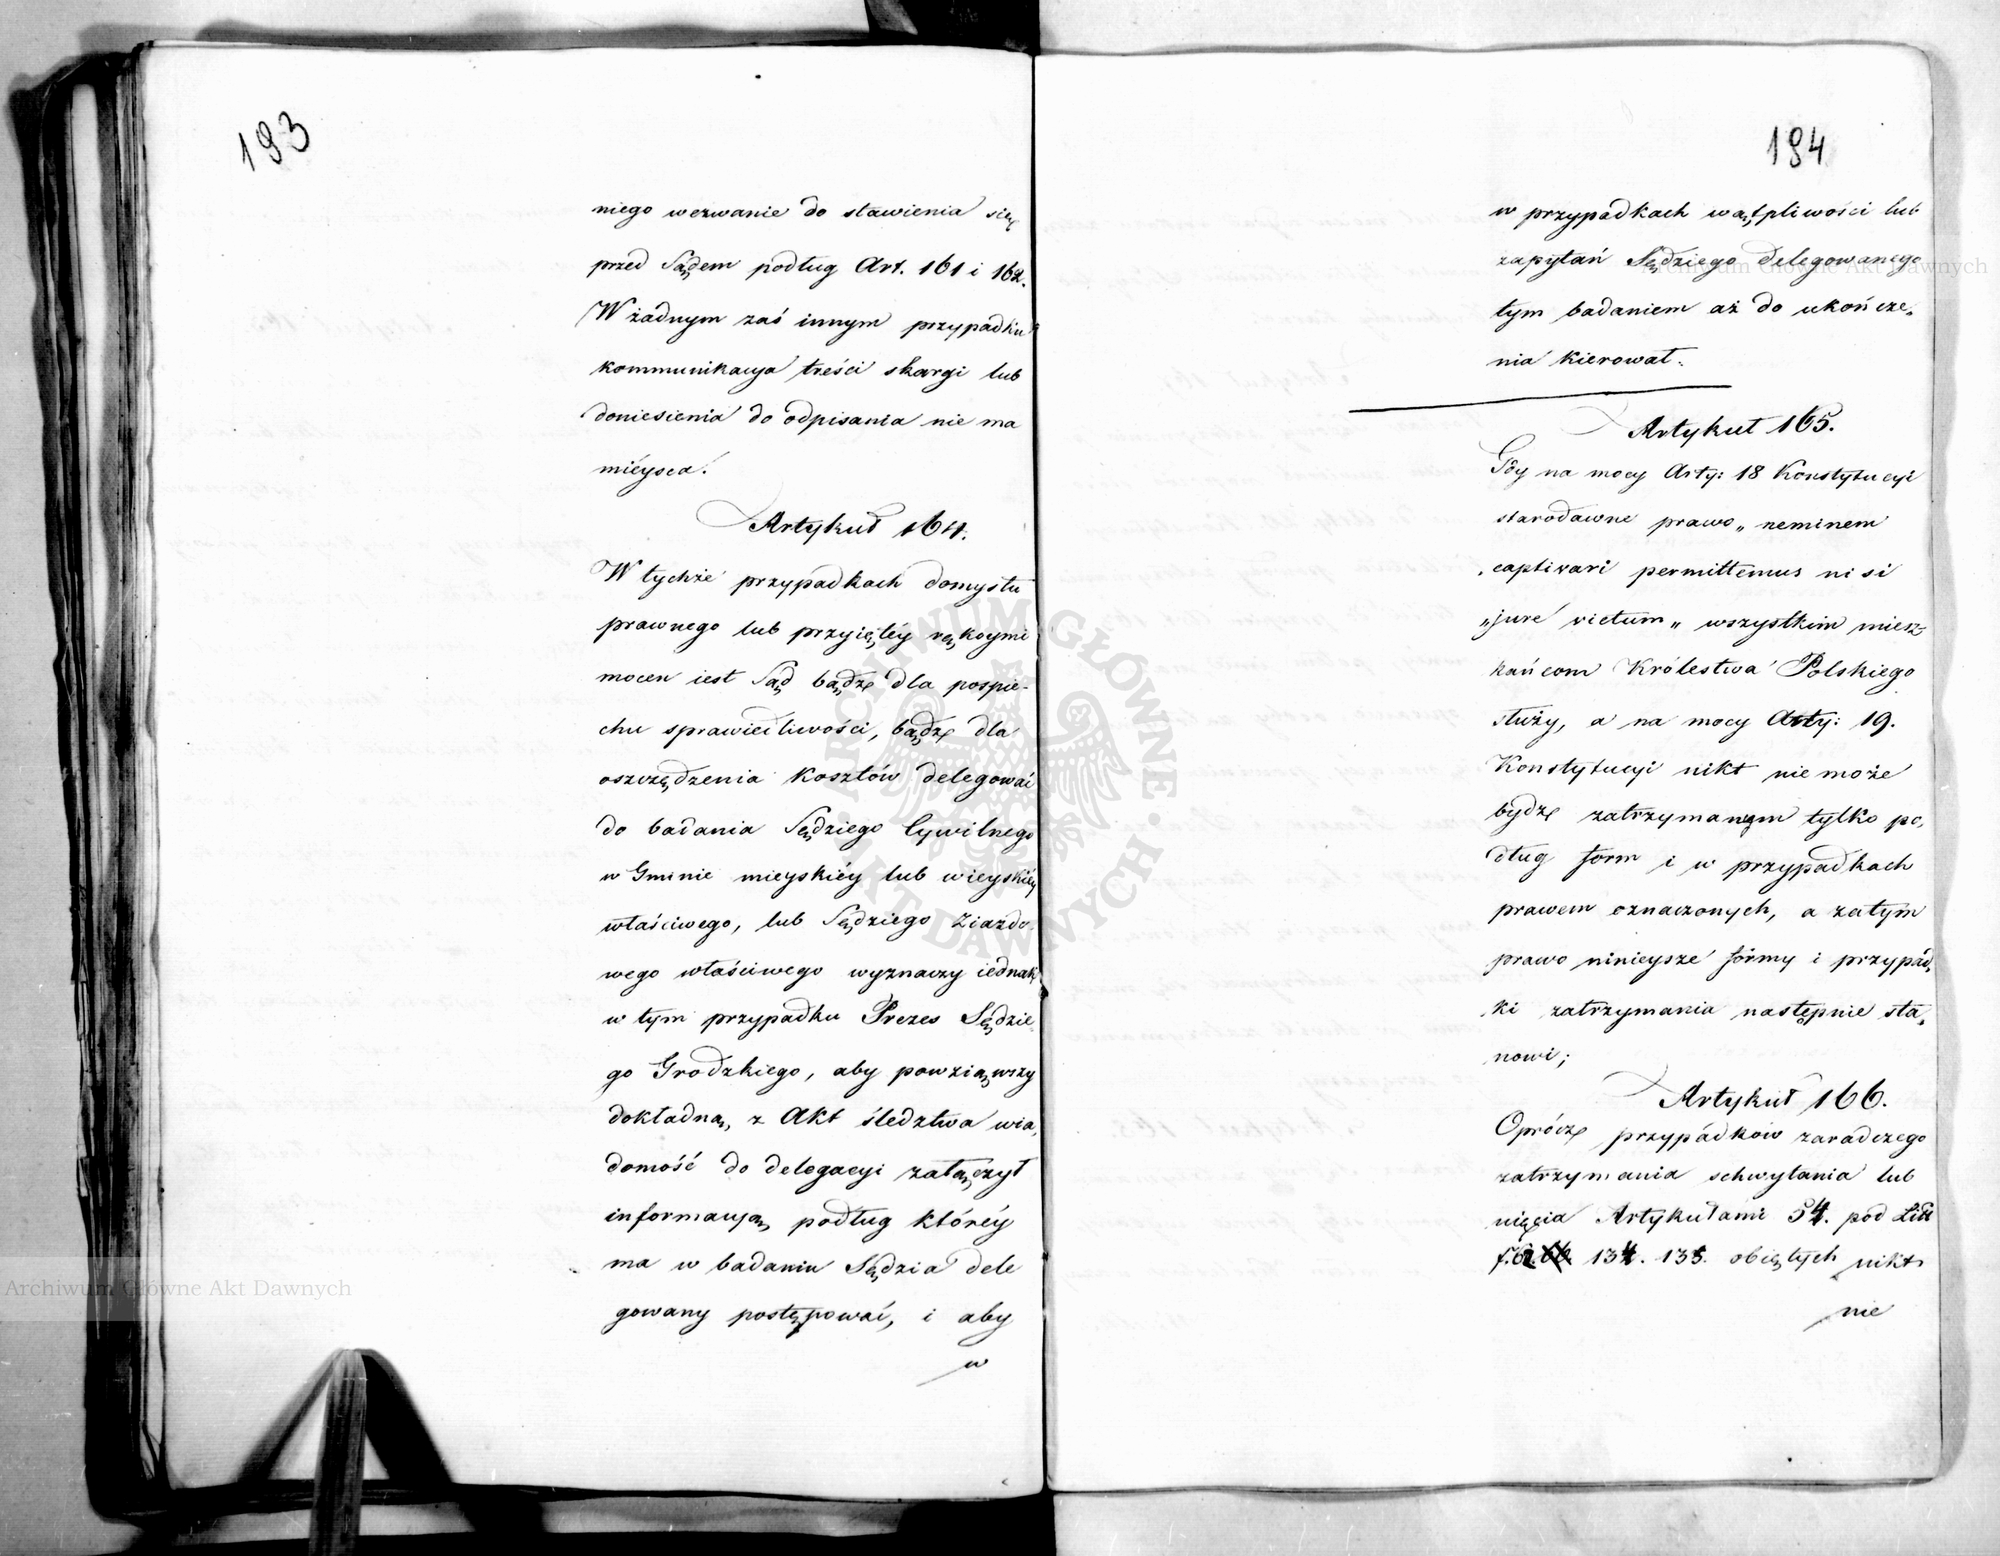 193
niego wezwanie do stawienia się
przed Sądem podług Art. 161 i 162.
W żadnym zaś innym przypadku
kommunikacya treści skargi lub
doniesienia do odpisania nie ma
miéysca.
Artykuł 164.
W tychże przypadkach domysłu
prawnego lub przyiętéy rękoymi
mocen iest Sąd bądź dla pospie-
chu sprawiedliwości, bądź dla
oszczędzenia kosztów delegować
do badania Sędziego Cywilnego
w Gminie mieyskiéy lub wieyskiéy
właściwego, lub Sędziego Ziazdo-
wego właściwego wyznaczy iednak
w tym przypadku Prezes Sędzie-
go Grodzkiego, aby powziąwszy
dokładną z Akt śledztwa wia,
domość do delegacyi załączył
informacyą, podług któréy
ma w badaniu Sędzia dele
gowany postępować, i aby
w
184
w przypadkach wątpliwości lub
zapytań Sędziego delegowanego
tym badaniem aż do ukończe,
nia kierował.
Artykuł 165.
Gdy na mocy Arty: 18 Konstytucyi
starodawne prawo „ neminem
„captivari permittemus nisi
„jure victum „ wszystkim miesz
kańcom Królestwa Polskiego
służy, a na mocy Arty: 19.
Konstytucyi nikt nie może
bydź zatrzymanym tylko po,
dług form i w przypadkach
prawem oznaczonych, a zatym
prawo ninieysze formy i przypad,
ki zatrzymania następnie sta,
nowi;
Artykuł 166.
Oprócz przypadków zaradczego
zatrzymania schwytania lub
uięcia Artykułami 54. pod Litt
134. 135. obiętych nikt
nie
Archiwum Główne Akt Dawnych
Archiwum Główne Akt Dawnych
ARCHIWUM GŁÓWNE AKT DAWNYCH